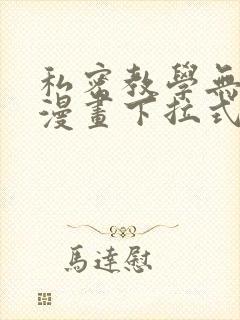 私密教學無
漫畫下拉式
馬達慰